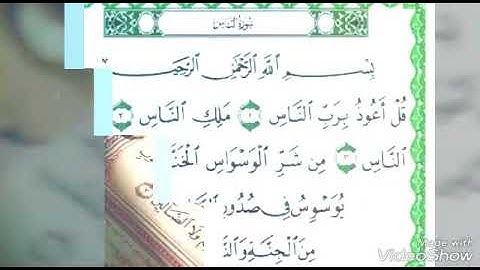 سُورَةُ النَّاسِ
بِسْمِ اللَّهِ الرَّحْمَٰنِ الرَّحِيمِ
قُلْ أَعُوذُ بِرَبِّ النَّاسِ ١ مَلِكِ النَّاسِ ٢
النَّاسِ ٣ مِن شَرِّ الْوَسْوَاسِ
يُوَسْوِسُ فِي
مِنَ الْجِنَّةِ
وَلَا الضَّالِّينَ
Made with
VideoShow